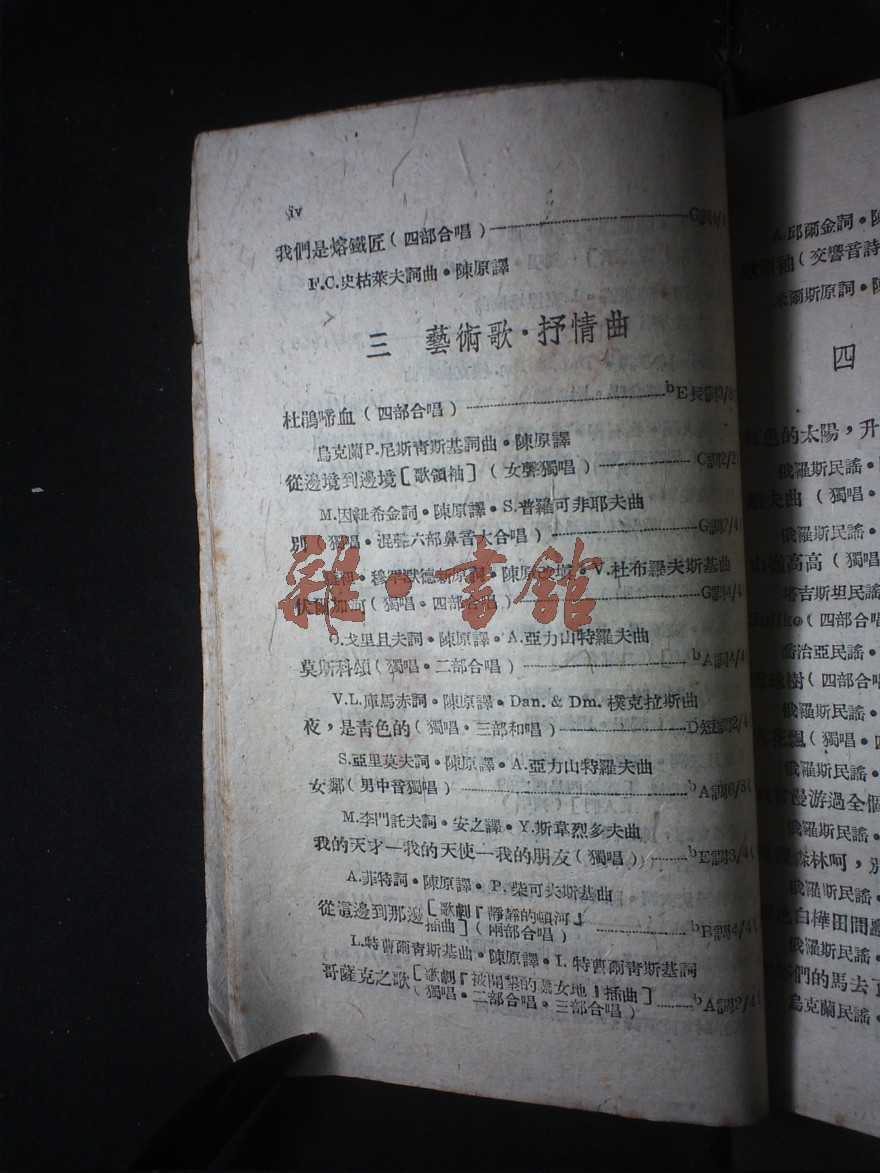 iv
我們是熔鐵匠(四部合唱)G調4/4
F.C.史枯萊夫詞曲•陳原譯
三 藝術歌•抒情曲
杜鵑啼血(四部合唱)bE長調3/8(
烏克蘭P.尼斯青斯基詞曲•陳原譯
從邊境到邊境[歌領袖](女聲獨唱)C調2/2
M.因紐希金詞•陳原譯•S.普羅可非耶夫曲
別(獨唱•混聲六部鼻音大合唱)G調2/4(
穆罕默德 原詞•陳原改填•V.杜布羅夫斯基曲
伏爾加河(獨唱•四部合唱)G調4/4(
O.戈里且夫詞•陳原譯•A.亞力山特羅夫曲
莫斯科頌(獨唱•二部合唱)bA調4/4(
V.L.庫馬赤詞•陳原譯•Dan. & Dm. 樸克拉斯曲
夜,是青色的(獨唱•三部和唱)D短調2/4(
S.亞里莫夫詞•陳原譯•A.亞力山特羅夫曲
女鄰(男中音獨唱)bA調6/8(
M.李門託夫詞•安之譯•Y.斯韋烈多夫曲
我的天才—我的天使—我的朋友(獨唱))bE調3/4(
A.菲特詞•陳原譯•P.柴可夫斯基曲
從這邊到那邊[歌劇『靜靜的頓河』
插曲](兩部合唱)bE調4/4(
L.特曹爾青斯基曲•陳原譯•I.特曹爾青斯基詞
哥薩克之歌[歌劇『被開墾的處女地』插曲]
(獨唱•二部合唱•三部合唱)bA調2/4(
A.邱爾金詞•陳
歌領袖(交響音詩
米爾斯原詞•陳
四
紅色的太陽,升
俄羅斯民謠•
夫曲(獨唱•
俄羅斯民謠•
山嶺高高(獨唱
塔吉斯坦民謠
Suliko(四部合唱
喬治亞民謠•
雪球樹(四部合唱
俄羅斯民謠•
花飄(獨唱•四
俄羅斯民謠•
我曾漫游過全個
俄羅斯民謠•
森林呵,別
俄羅斯民謠•
色白樺田間
俄羅斯民謠•
們的馬去了
烏克蘭民謠•
雜•書館